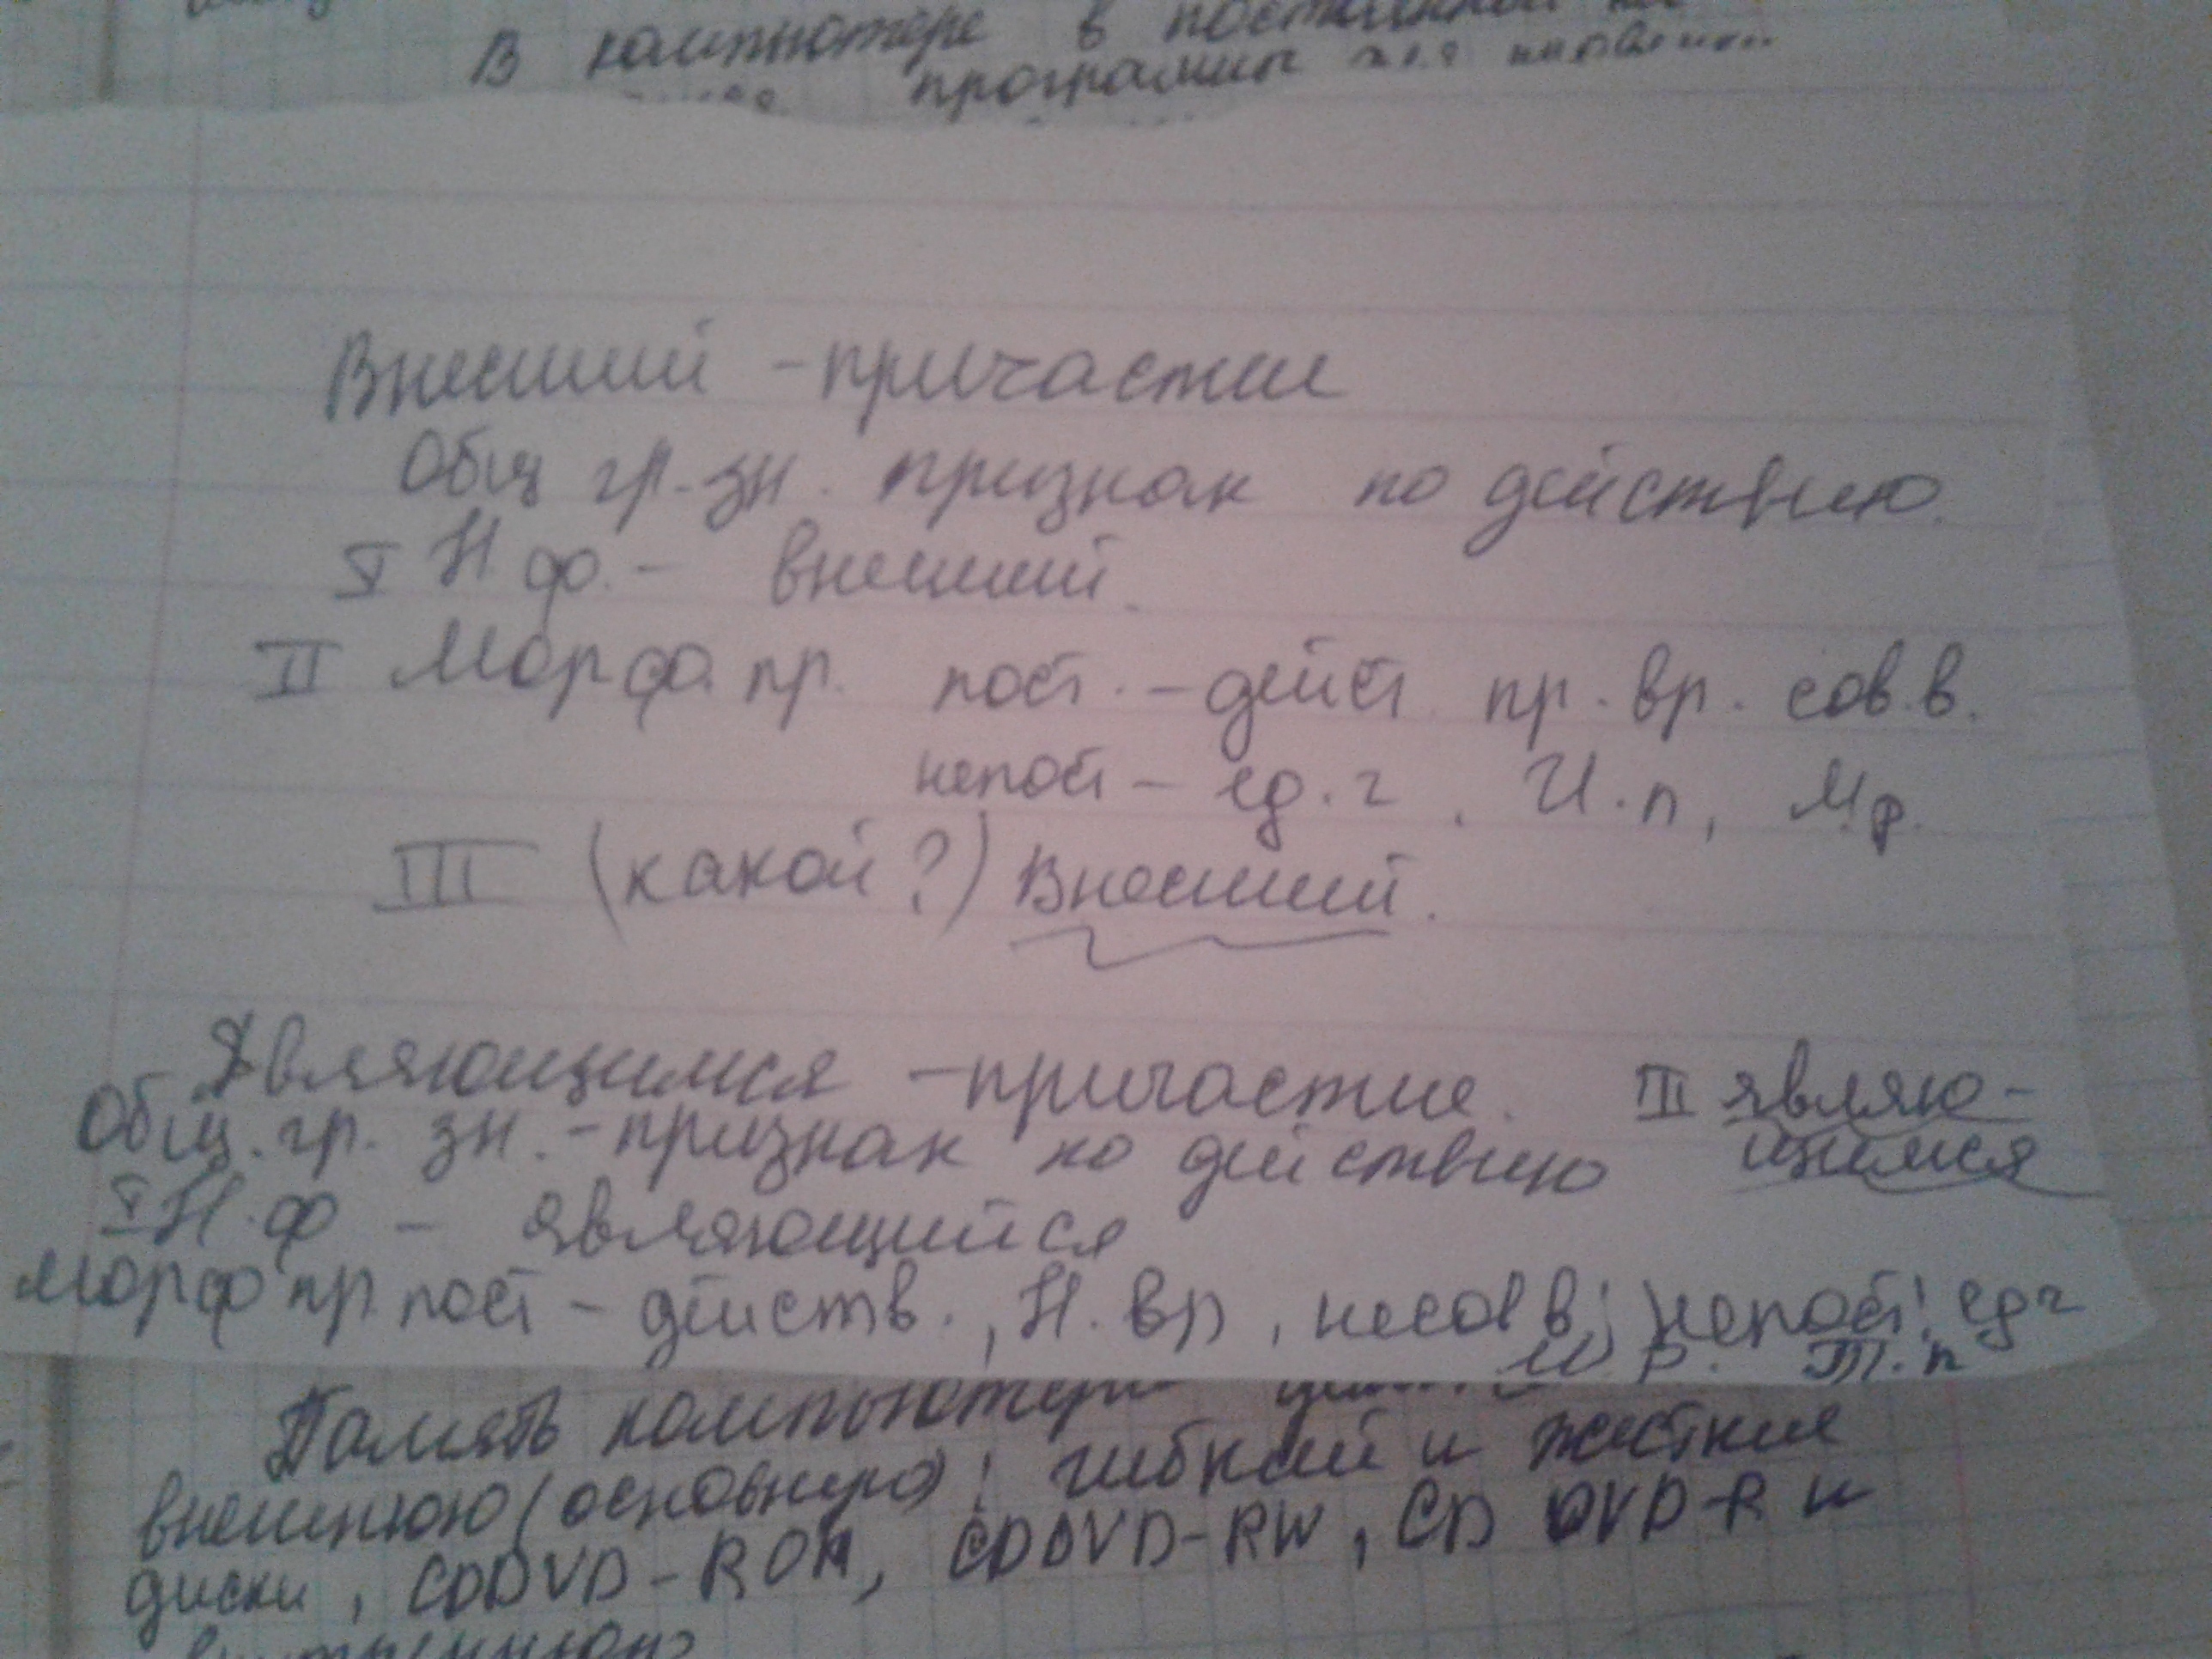 В компьютере в
программы для
Внесший - причастие
Общ гр. зн. признак по действию.
I Н.ф. - внесший.
II Морф. пр. пост. - дейст. пр. вр. сов. в.
непост - ед. ч, И. п, м.р.
III (какой?) Внесший.
Являющимся - причастие. III являю-
щимся
Общ. гр. зн. - признак по действию
I Н. ф - являющийся
Морф пр. пост - действ., Н. вр, несов в; непост; ед ч
м. р. Т. п
Память компьютера
внешнюю (основную); гибкий и жесткие
диски, CDDVD-ROM, CDDVD-RW, CD DVD-R и